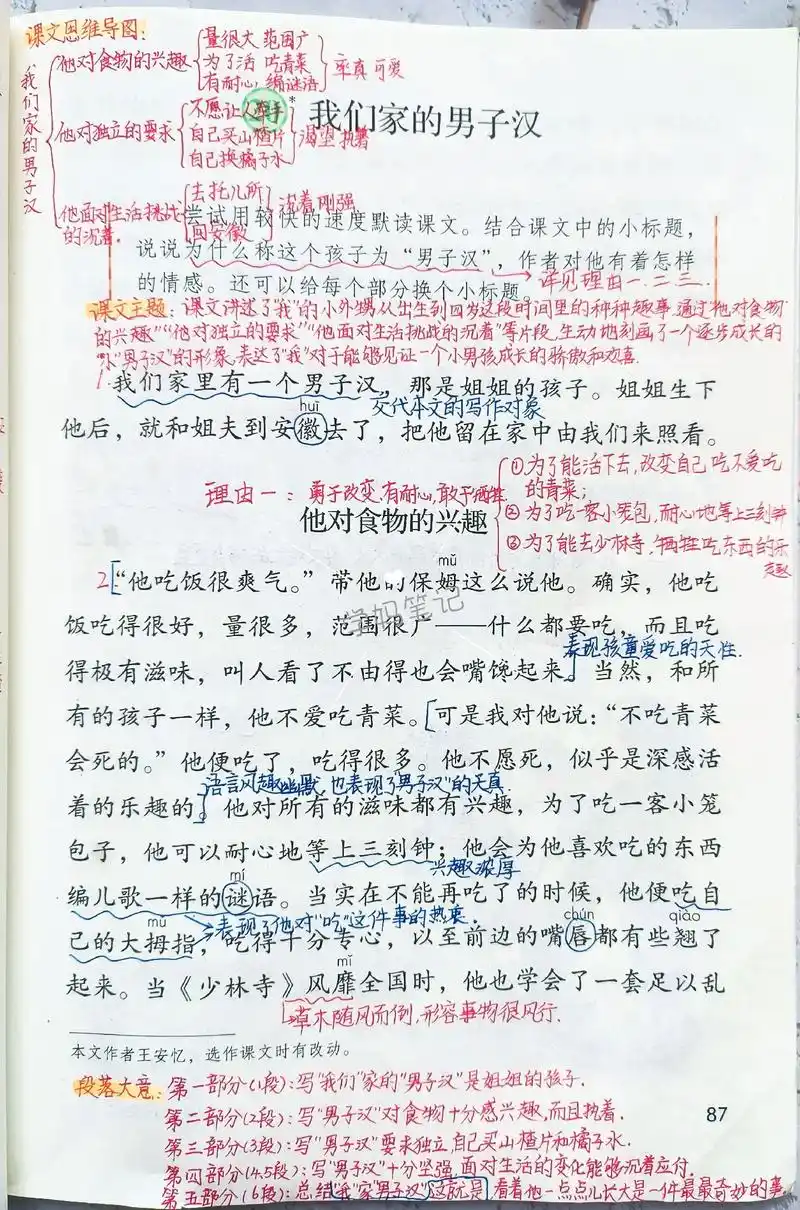 课文思维导图:
我们家的男子汉
他对食物的兴趣
量很大 范围广
为了活 吃青菜
有耐心,编谜语
率真 可爱
他对独立的要求
不愿让人牵手
自己买山楂片
自己换橘子水
渴望 执着
他面对生活挑战
的沉着.
去托儿所
回安徽
沉着 刚强
* 我们家的男子汉
尝试用较快的速度默读课文。结合课文中的小标题,
说说为什么称这个孩子为“男子汉”,作者对他有着怎样
的情感。还可以给每个部分换个小标题。
详见理由一.二.三.
课文主题:课文讲述了“我”的小外甥从出生到四岁这段时间里的种种趣事.通过“他对食物
的兴趣”“他对独立的要求”“他面对生活挑战的沉着”等片段,生动地刻画了一个逐步成长的
“小”男子汉”的形象,表达了“我”对于能够见证一个小男孩成长的骄傲和欢喜.
1.我们家里有一个男子汉,那是姐姐的孩子。姐姐生下
交代本文的写作对象
huī
他后,就和姐夫到安徽去了,把他留在家中由我们来照看。
理由一:勇于改变,有耐心,敢于牺牲
①为了能活下去,改变自己吃不爱吃
的青菜;
②为了吃一客小笼包,耐心地等上三刻钟
③为了能去少林寺,牺牲吃东西的乐
趣
他对食物的兴趣
mǔ
2“他吃饭很爽气。”带他的保姆这么说他。确实,他吃
饭吃得很好,量很多,范围很广——什么都要吃,而且吃
学妈笔记
表现孩童爱吃的天性.
得极有滋味,叫人看了不由得也会嘴馋起来。当然,和所
有的孩子一样,他不爱吃青菜。可是我对他说:“不吃青菜
会死的。”他便吃了,吃得很多。他不愿死,似乎是深感活
语言风趣幽默,也表现了“男子汉”的天真.
着的乐趣的。他对所有的滋味都有兴趣,为了吃一客小笼
包子,他可以耐心地等上三刻钟;他会为他喜欢吃的东西
兴趣浓厚
mí
编儿歌一样的谜语。当实在不能再吃了的时候,他便吃自
表现了他对“吃”这件事的热衷.
mǔ chún qiào
己的大拇指,吃得十分专心,以至前边的嘴唇都有些翘了
mǐ
起来。当《少林寺》风靡全国时,他也学会了一套足以乱
草木随风而倒,形容事物很风行.
本文作者王安忆,选作课文时有改动。
段落大意:第一部分(1段):写“我们”家的“男子汉”是姐姐的孩子.
第二部分(2段):写“男子汉”对食物十分感兴趣,而且执着.
87
第三部分(3段):写“男子汉”要求独立,自己买山楂片和橘子水.
第四部分(4.5段):写“男子汉”十分坚强,面对生活的变化能够沉着应付.
第五部分(6段):总结“我”家“男子汉”,这就是 看着他一点点儿长大是一件最最奇妙的事